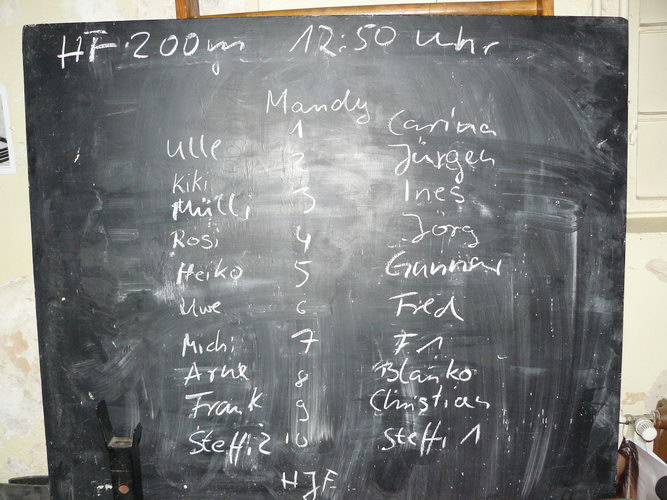 HF 200m 12:50 Uhr
Mandy
1 Carina
Ulle 2 Jürgen
Kiki 3 Ines
Mülli
Rosi 4 Jörg
Heiko 5 Gunnar
Uwe 6 Fred
Michi 7 F. 1
Arne 8 Blanko
Frank 9 Christian
Steffi 2 10 Steffi 1
HJF